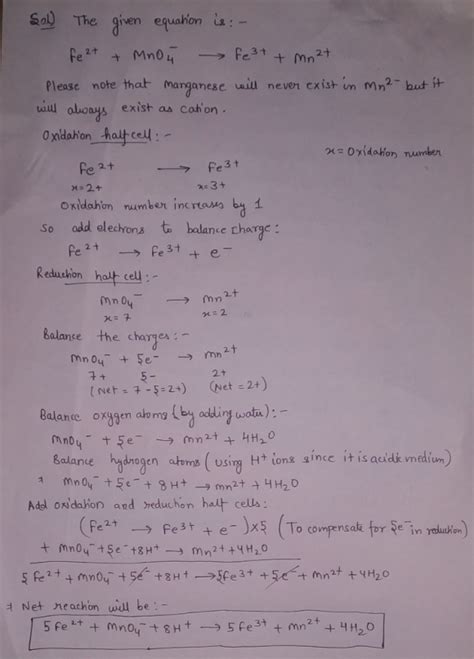 Sol) The given equation is :-
Fe²⁺ + MnO₄⁻ → Fe³⁺ + Mn²⁺
Please note that manganese will never exist in Mn²⁻ but it
will always exist as cation.
Oxidation half cell :-
x = Oxidation number
Fe²⁺ → Fe³⁺
x=2+ x=3+
Oxidation number increases by 1
So add electrons to balance charge:
Fe²⁺ → Fe³⁺ + e⁻
Reduction half cell :-
MnO₄⁻ → Mn²⁺
x=7 x=2
Balance the charges :-
MnO₄⁻ + 5e⁻ → Mn²⁺
7+ 5- 2+
(Net = 7-5=2+) (Net = 2+)
Balance oxygen atoms (by adding water) :-
MnO₄⁻ + 5e⁻ → Mn²⁺ + 4H₂O
Balance hydrogen atoms (using H⁺ ions since it is acidic medium)
⇒ MnO₄⁻ + 5e⁻ + 8H⁺ → Mn²⁺ + 4H₂O
Add oxidation and reduction half cells:
(Fe²⁺ → Fe³⁺ + e⁻)×5 (To compensate for 5e⁻ in reduction)
+ MnO₄⁻ + 5e⁻ + 8H⁺ → Mn²⁺ + 4H₂O
5Fe²⁺ + MnO₄⁻ + 5e⁻ + 8H⁺ → 5Fe³⁺ + 5e⁻ + Mn²⁺ + 4H₂O
⇒ Net reaction will be :-
5Fe²⁺ + MnO₄⁻ + 8H⁺ → 5Fe³⁺ + Mn²⁺ + 4H₂O